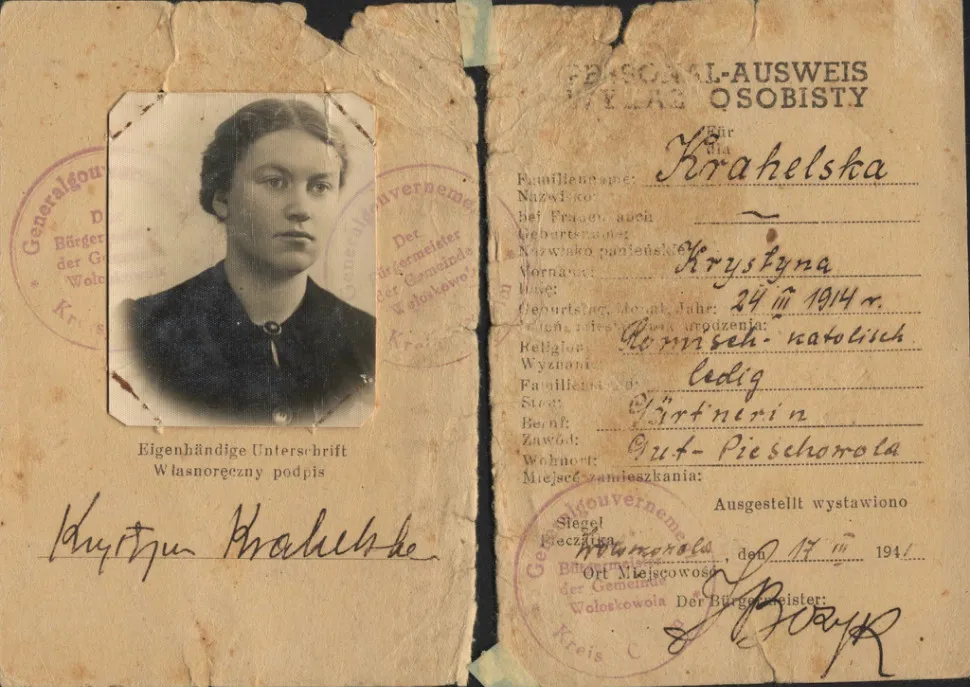 Generalgouvernement
Der
Bürgermeister
der Gemeinde
Wołoskowola
Kreis
Eigenhändige Unterschrift
Własnoręczny podpis
Krystyna Krahelska
PERSONAL-AUSWEIS
WYKAZ OSOBISTY
Für
dla
Familienname: Krahelska
Nazwisko:
bei Frauen auch
Geburtsname:
Nazwisko panieńskie
Vorname: Krystyna
Imię:
Geburtstag, Monat, Jahr: 24 III 1914 r.
urodzenia:
Religion: Römisch-katolisch
Wyznanie:
Familienstand: ledig
Stan:
Beruf: Gärtnerin
Zawód:
Wohnort: Gut-Pieschowola
Miejsce zamieszkania:
Ausgestellt wystawiono
Siegel
Pieczątka
, den 17 III 194
Ort Miejscowość
Der Bürgermeister:
Generalgouvernement
Bürgermeister
der Gemeinde
Wołoskowola
Kreis